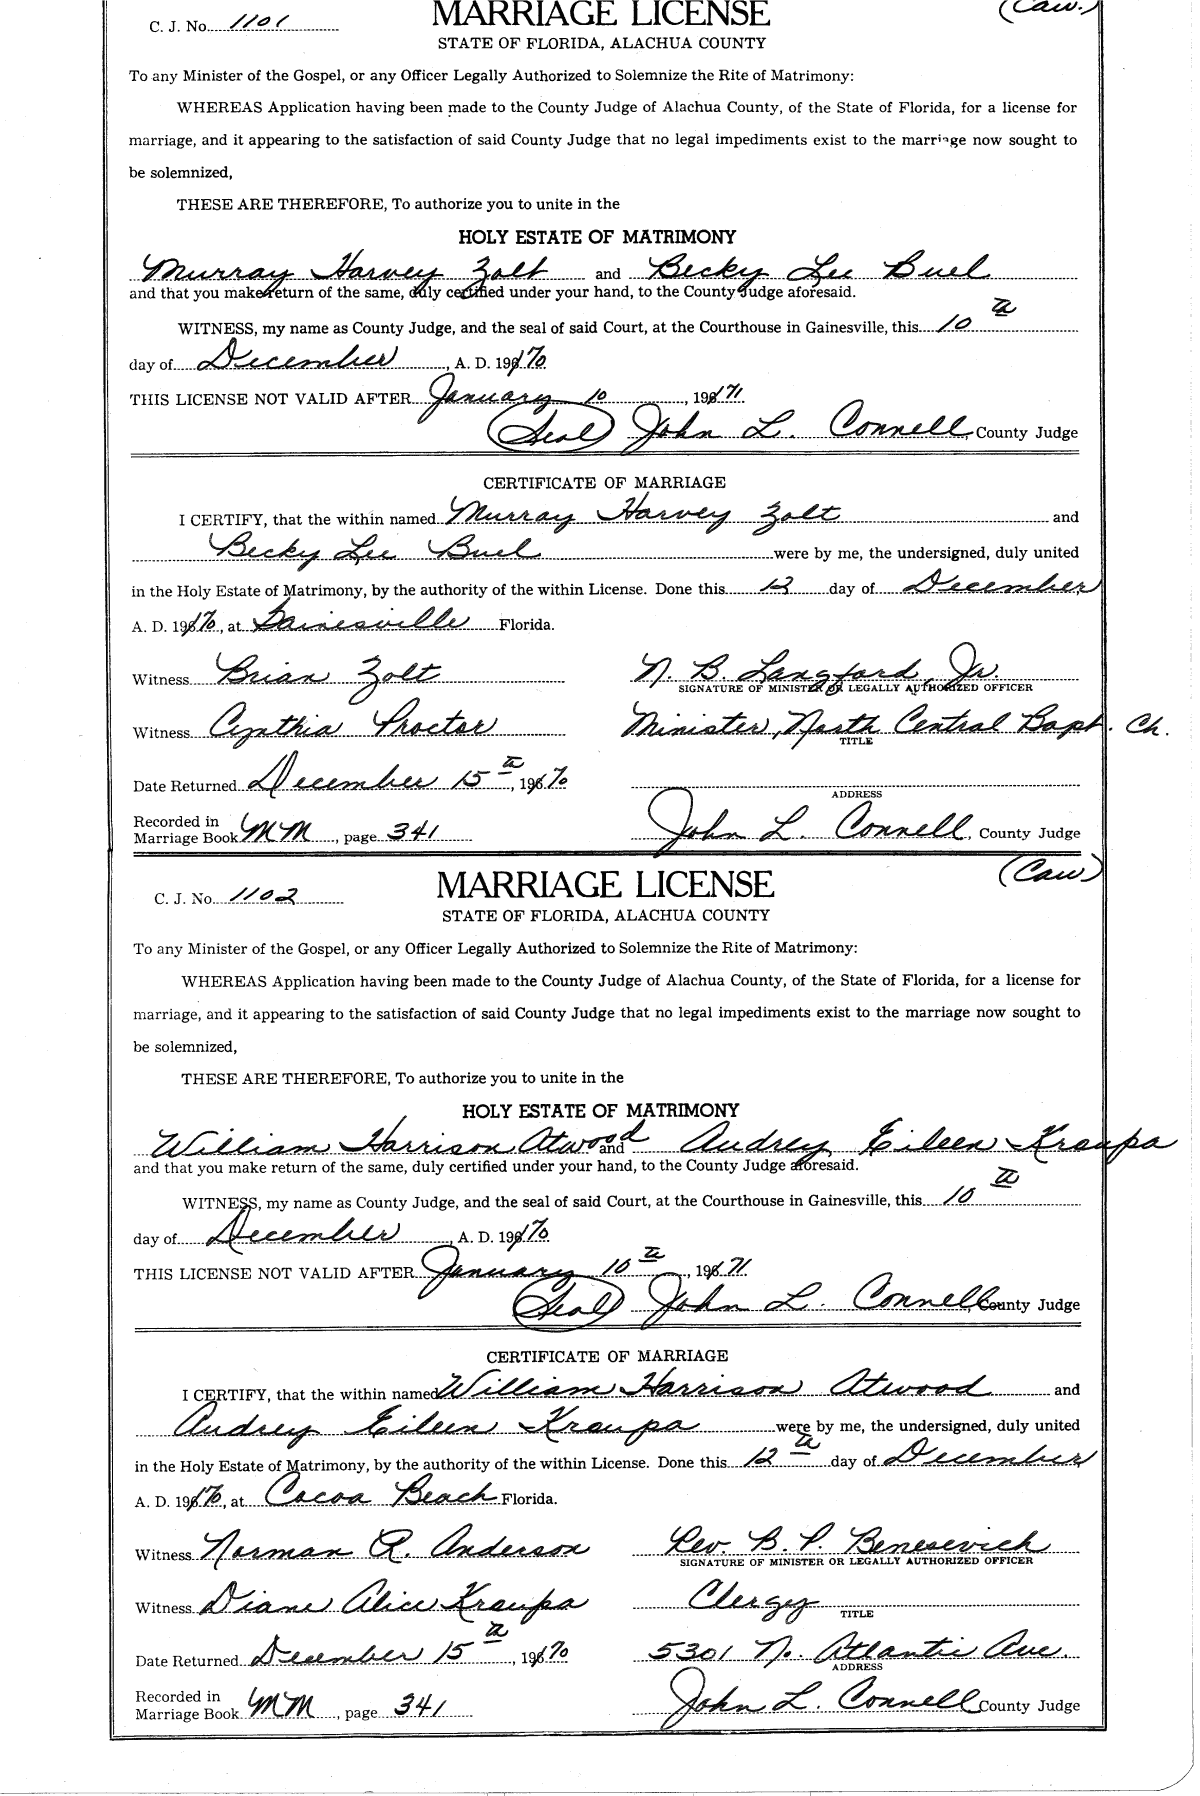 C. J. No. 1101 MARRIAGE LICENSE (Caw.)
STATE OF FLORIDA, ALACHUA COUNTY
To any Minister of the Gospel, or any Officer Legally Authorized to Solemnize the Rite of Matrimony:
WHEREAS Application having been made to the County Judge of Alachua County, of the State of Florida, for a license for
marriage, and it appearing to the satisfaction of said County Judge that no legal impediments exist to the marriage now sought to
be solemnized,
THESE ARE THEREFORE, To authorize you to unite in the
HOLY ESTATE OF MATRIMONY
Murray Harvey Zolt and Becky Lee Buel
and that you make return of the same, duly certified under your hand, to the County Judge aforesaid.
WITNESS, my name as County Judge, and the seal of said Court, at the Courthouse in Gainesville, this 10 th
day of December, A. D. 1970
THIS LICENSE NOT VALID AFTER January 10, 1971
(Seal) John L. Connell, County Judge
CERTIFICATE OF MARRIAGE
I CERTIFY, that the within named Murray Harvey Zolt and
Becky Lee Buel were by me, the undersigned, duly united
in the Holy Estate of Matrimony, by the authority of the within License. Done this day of December
A. D. 1970, at Gainesville Florida.
Witness Brian Zolt N. B. Langford, Jr.
SIGNATURE OF MINISTER OR LEGALLY AUTHORIZED OFFICER
Witness Cynthia Proctor Minister, North Central Bapt. Ch.
TITLE
Date Returned December 15 th, 1970
ADDRESS
Recorded in
Marriage Book MM, page 341 John L. Connell, County Judge
C. J. No. 1102 MARRIAGE LICENSE (Caw)
STATE OF FLORIDA, ALACHUA COUNTY
To any Minister of the Gospel, or any Officer Legally Authorized to Solemnize the Rite of Matrimony:
WHEREAS Application having been made to the County Judge of Alachua County, of the State of Florida, for a license for
marriage, and it appearing to the satisfaction of said County Judge that no legal impediments exist to the marriage now sought to
be solemnized,
THESE ARE THEREFORE, To authorize you to unite in the
HOLY ESTATE OF MATRIMONY
William Harrison Atwood and Audrey Eileen Kraupa
and that you make return of the same, duly certified under your hand, to the County Judge aforesaid.
WITNESS, my name as County Judge, and the seal of said Court, at the Courthouse in Gainesville, this 10 th
day of December, A. D. 1970
THIS LICENSE NOT VALID AFTER January 10 th, 1971
(Seal) John L. Connell County Judge
CERTIFICATE OF MARRIAGE
I CERTIFY, that the within named William Harrison Atwood and
Audrey Eileen Kraupa were by me, the undersigned, duly united
in the Holy Estate of Matrimony, by the authority of the within License. Done this 12 th day of December
A. D. 1970, at Cocoa Beach Florida.
Witness Norman R. Anderson Rev. B. P. Benesevich
SIGNATURE OF MINISTER OR LEGALLY AUTHORIZED OFFICER
Witness Diane Alice Kraupa Clergy
TITLE
Date Returned December 15 th, 1970 5301 No. Atlantic Ave.
ADDRESS
Recorded in
Marriage Book MM, page 341 John L. Connell County Judge